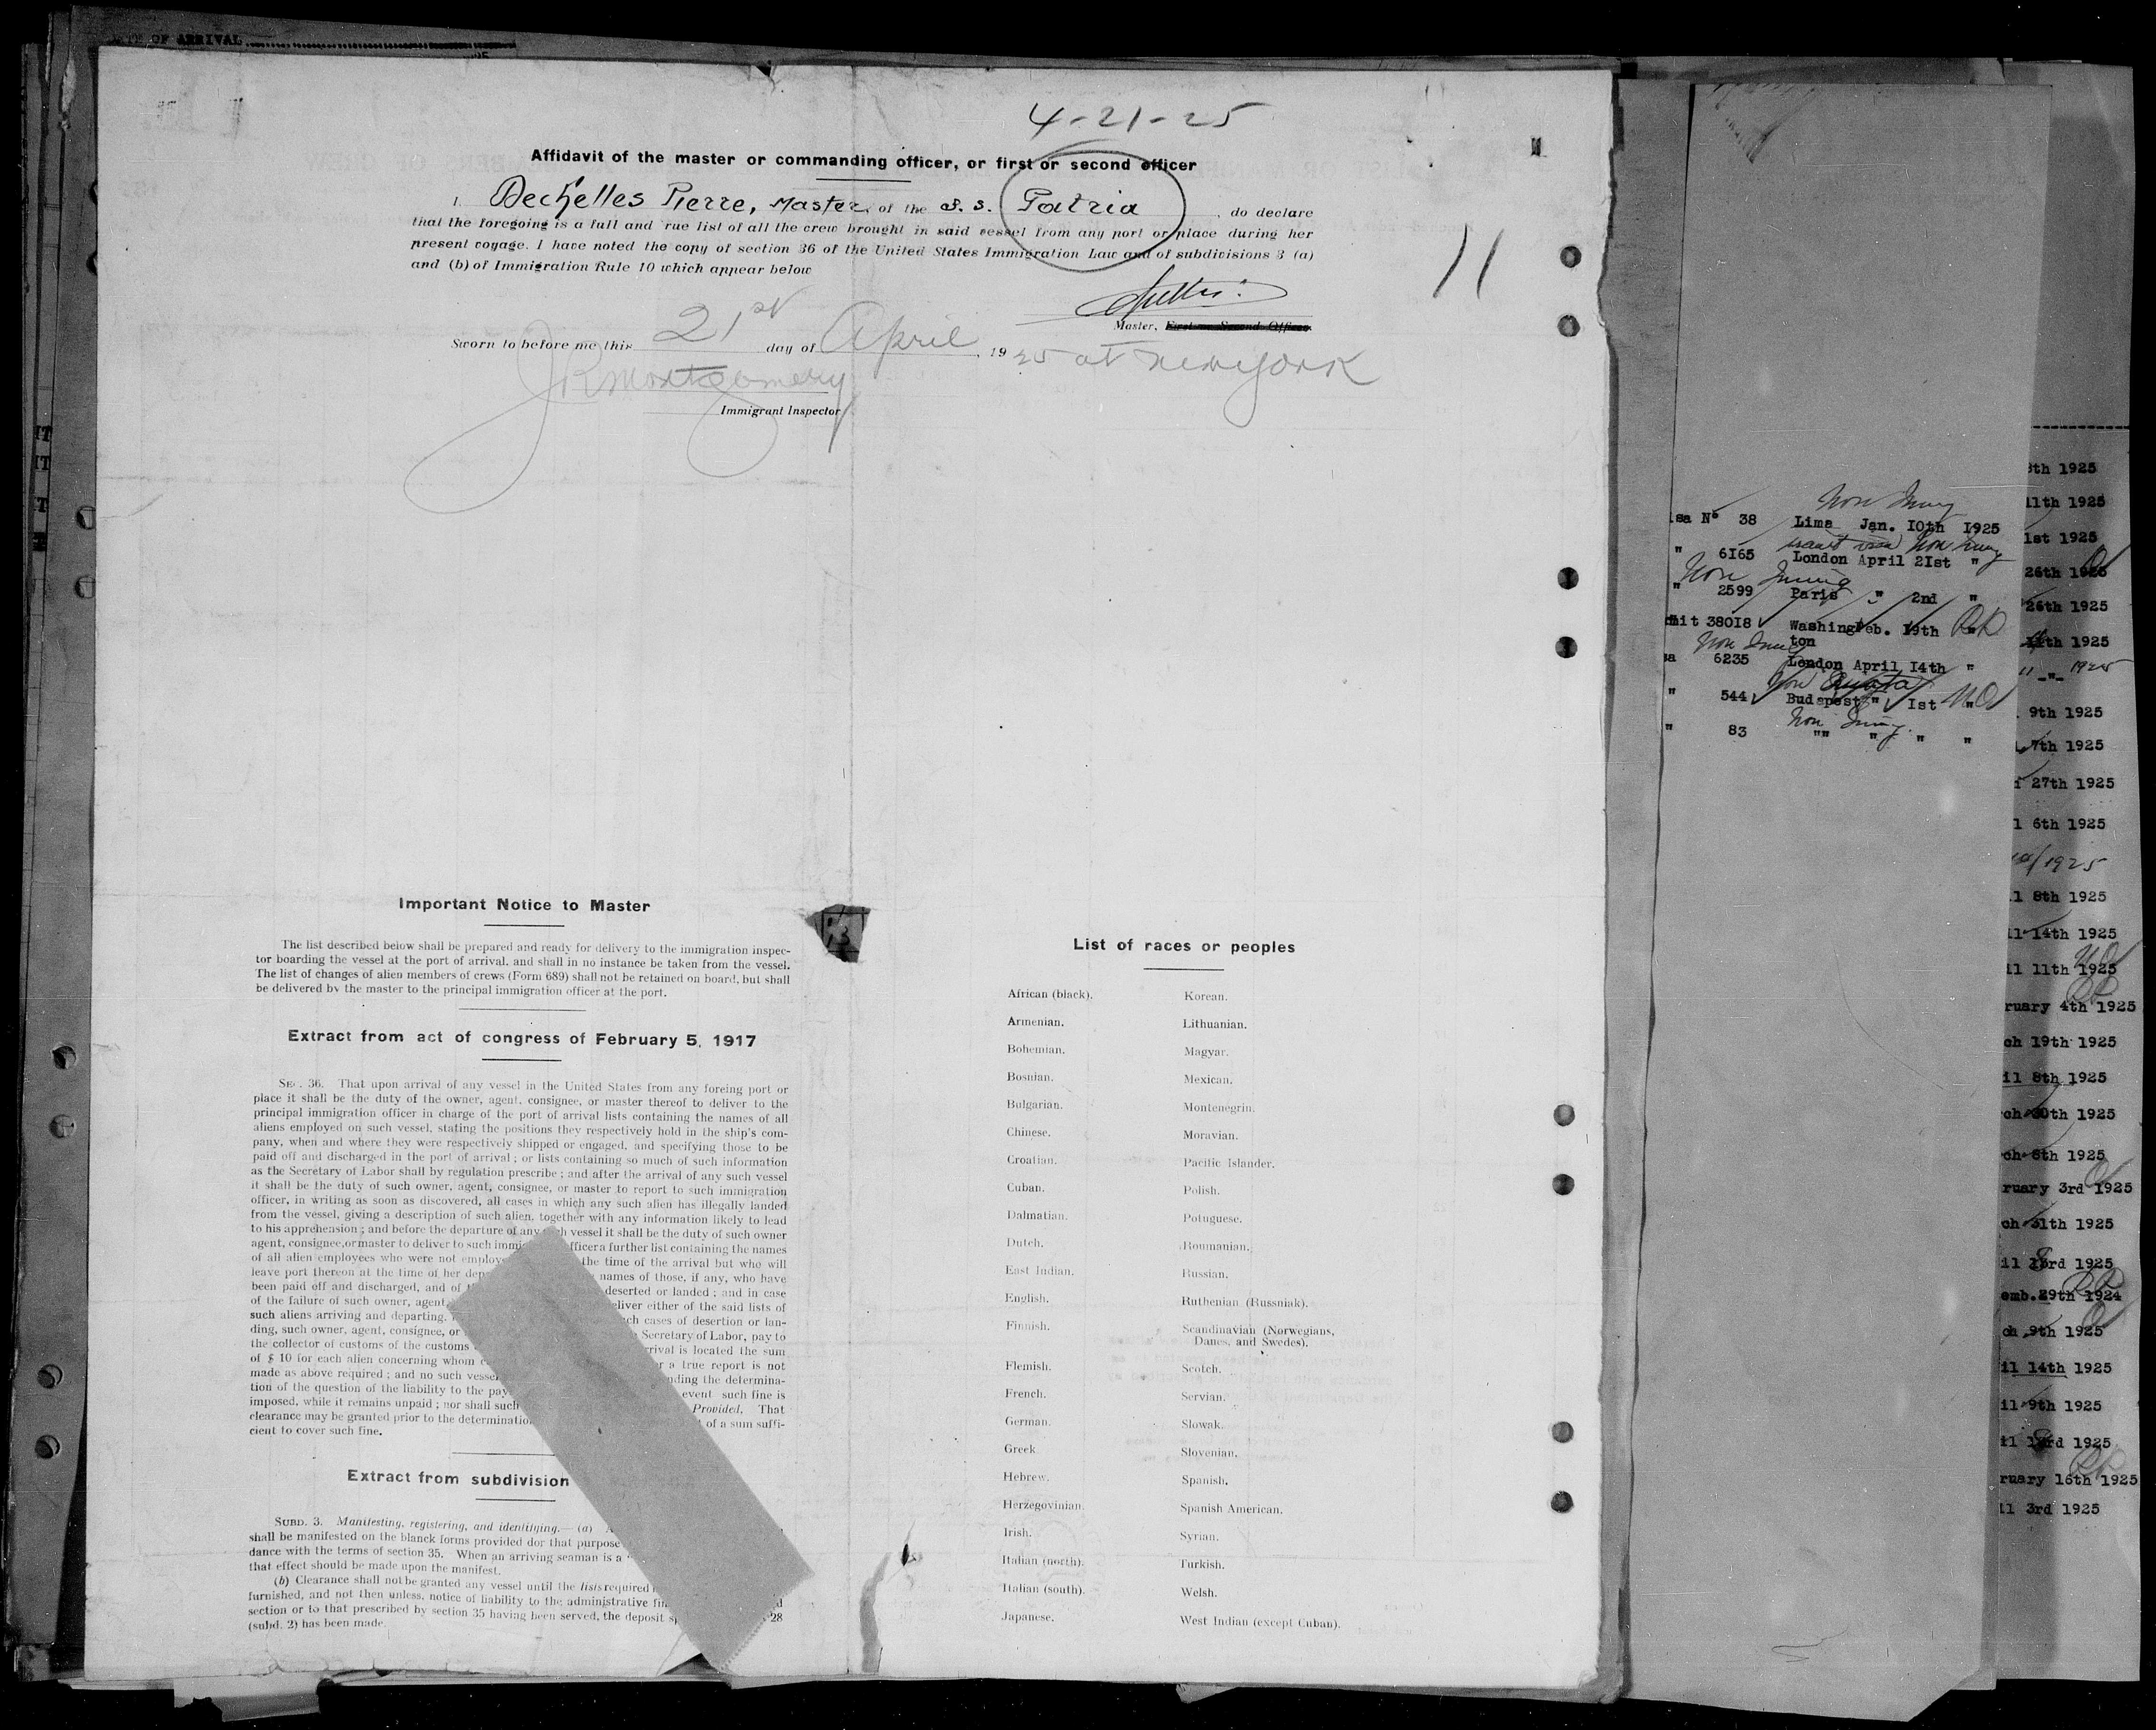 OF ARRIVAL
4-21-25
Affidavit of the master or commanding officer, or first or second officer
I. Dechelles Pierre, Master, of the S. S. Patria, do declare
that the foregoing is a full and rue list of all the crew brought in said vessel from any port or place during her
present voyage. I have noted the copy of section 36 of the United States Immigration Law and of subdivisions 3 (a)
and (b) of Immigration Rule 10 which appear below
11
Master, First or Second Officer
Sworn to before me this 21st day of April, 1925 at New York
JR Montgomery
Immigrant Inspector
Important Notice to Master
The list described below shall be prepared and ready for delivery to the immigration inspec-
tor boarding the vessel at the port of arrival, and shall in no instance be taken from the vessel.
The list of changes of alien members of crews (Form 689) shall not be retained on board, but shall
be delivered by the master to the principal immigration officer at the port.
Extract from act of congress of February 5, 1917
SEC. 36. That upon arrival of any vessel in the United States from any foreing port or
place it shall be the duty of the owner, agent, consignee, or master thereof to deliver to the
principal immigration officer in charge of the port of arrival lists containing the names of all
aliens employed on such vessel, stating the positions they respectively hold in the ship's com-
pany, when and where they were respectively shipped or engaged, and specifying those to be
paid off and discharged in the port of arrival; or lists containing so much of such information
as the Secretary of Labor shall by regulation prescribe; and after the arrival of any such vessel
it shall be the duty of such owner, agent, consignee, or master to report to such immigration
officer, in writing as soon as discovered, all cases in which any such alien has illegally landed
from the vessel, giving a description of such alien, together with any information likely to lead
to his apprehension; and before the departure of any vessel it shall be the duty of such owner
agent, consignee, or master to deliver to such fficer a further list containing the names
of all alien employees who were not employ the time of the arrival but who will
leave port thereon at the time of her dep names of those, if any, who have
been paid off and discharged, and of deserted or landed; and in case
of the failure of such owner, agent, liver either of the said lists of
such aliens arriving and departing. ch cases of desertion or lan-
ding, such owner, agent, consignee, or Secretary of Labor, pay to
the collector of customs of the customs rrival is located the sum
of $ 10 for each alien concerning whom r a true report is not
made as above required; and no such vesse nding the determina-
tion of the question of the liability to the pay event such fine is
imposed, while it remains unpaid; nor shall such Provided, That
clearance may be granted prior to the determination of a sum suffi-
cient to cover such fine.
Extract from subdivision
SUBD. 3. Manifesting, registering, and identifying.— (a)
shall be manifested on the blanck forms provided dor that purpose
dance with the terms of section 35. When an arriving seaman is a
that effect should be made upon the manifest.
(b) Clearance shall not be granted any vessel until the lists required
furnished, and not then unless, notice of liability to the administrative fin
section or to that prescribed by section 35 having been served, the deposit 28
(subd. 2) has been made.
List of races or peoples
African (black).
Armenian.
Bohemian.
Bosnian.
Bulgarian.
Chinese.
Croatian.
Cuban.
Dalmatian.
Dutch.
East Indian.
English.
Finnish.
Flemish.
French.
German.
Greek
Hebrew.
Herzegovinian.
Irish.
Italian (north).
Italian (south).
Japanese.
Korean.
Lithuanian.
Magyar.
Mexican.
Montenegrin.
Moravian.
Pacific Islander.
Polish.
Potuguese.
Roumanian.
Russian.
Ruthenian (Russniak).
Scandinavian (Norwegians,
Danes, and Swedes).
Scotch.
Servian.
Slowak.
Slovenian.
Spanish.
Spanish American.
Syrian.
Turkish.
Welsh.
West Indian (except Cuban).
Non Immig
sa No 38 Lima Jan. IOth I925
Non Immig
" 6I65 London April 2Ist "
Non Immig
" 2599 Paris " 2nd "
mit 380I8 Washing Feb. I9th "
ton
Non Immig
a 6235 London April I4th "
Non Quota
" 544 Budapest " Ist "
Non Immig.
" 83 "" " " "
8th 1925
11th 1925
1st 1925
26th 1925
26th 1925
11th 1925
11 -"- 1925
9th 1925
7th 1925
27th 1925
l 6th 1925
1925
l 8th 1925
il 14th 1925
il 11th 1925
ruary 4th 1925
ch 19th 1925
il 8th 1925
ch 30th 1925
ch 6th 1925
ruary 3rd 1925
ch 31th 1925
il 3rd 1925
emb. 29th 1924
ch 9th 1925
il 14th 1925
il 9th 1925
il 3rd 1925
ruary 16th 1925
il 3rd 1925